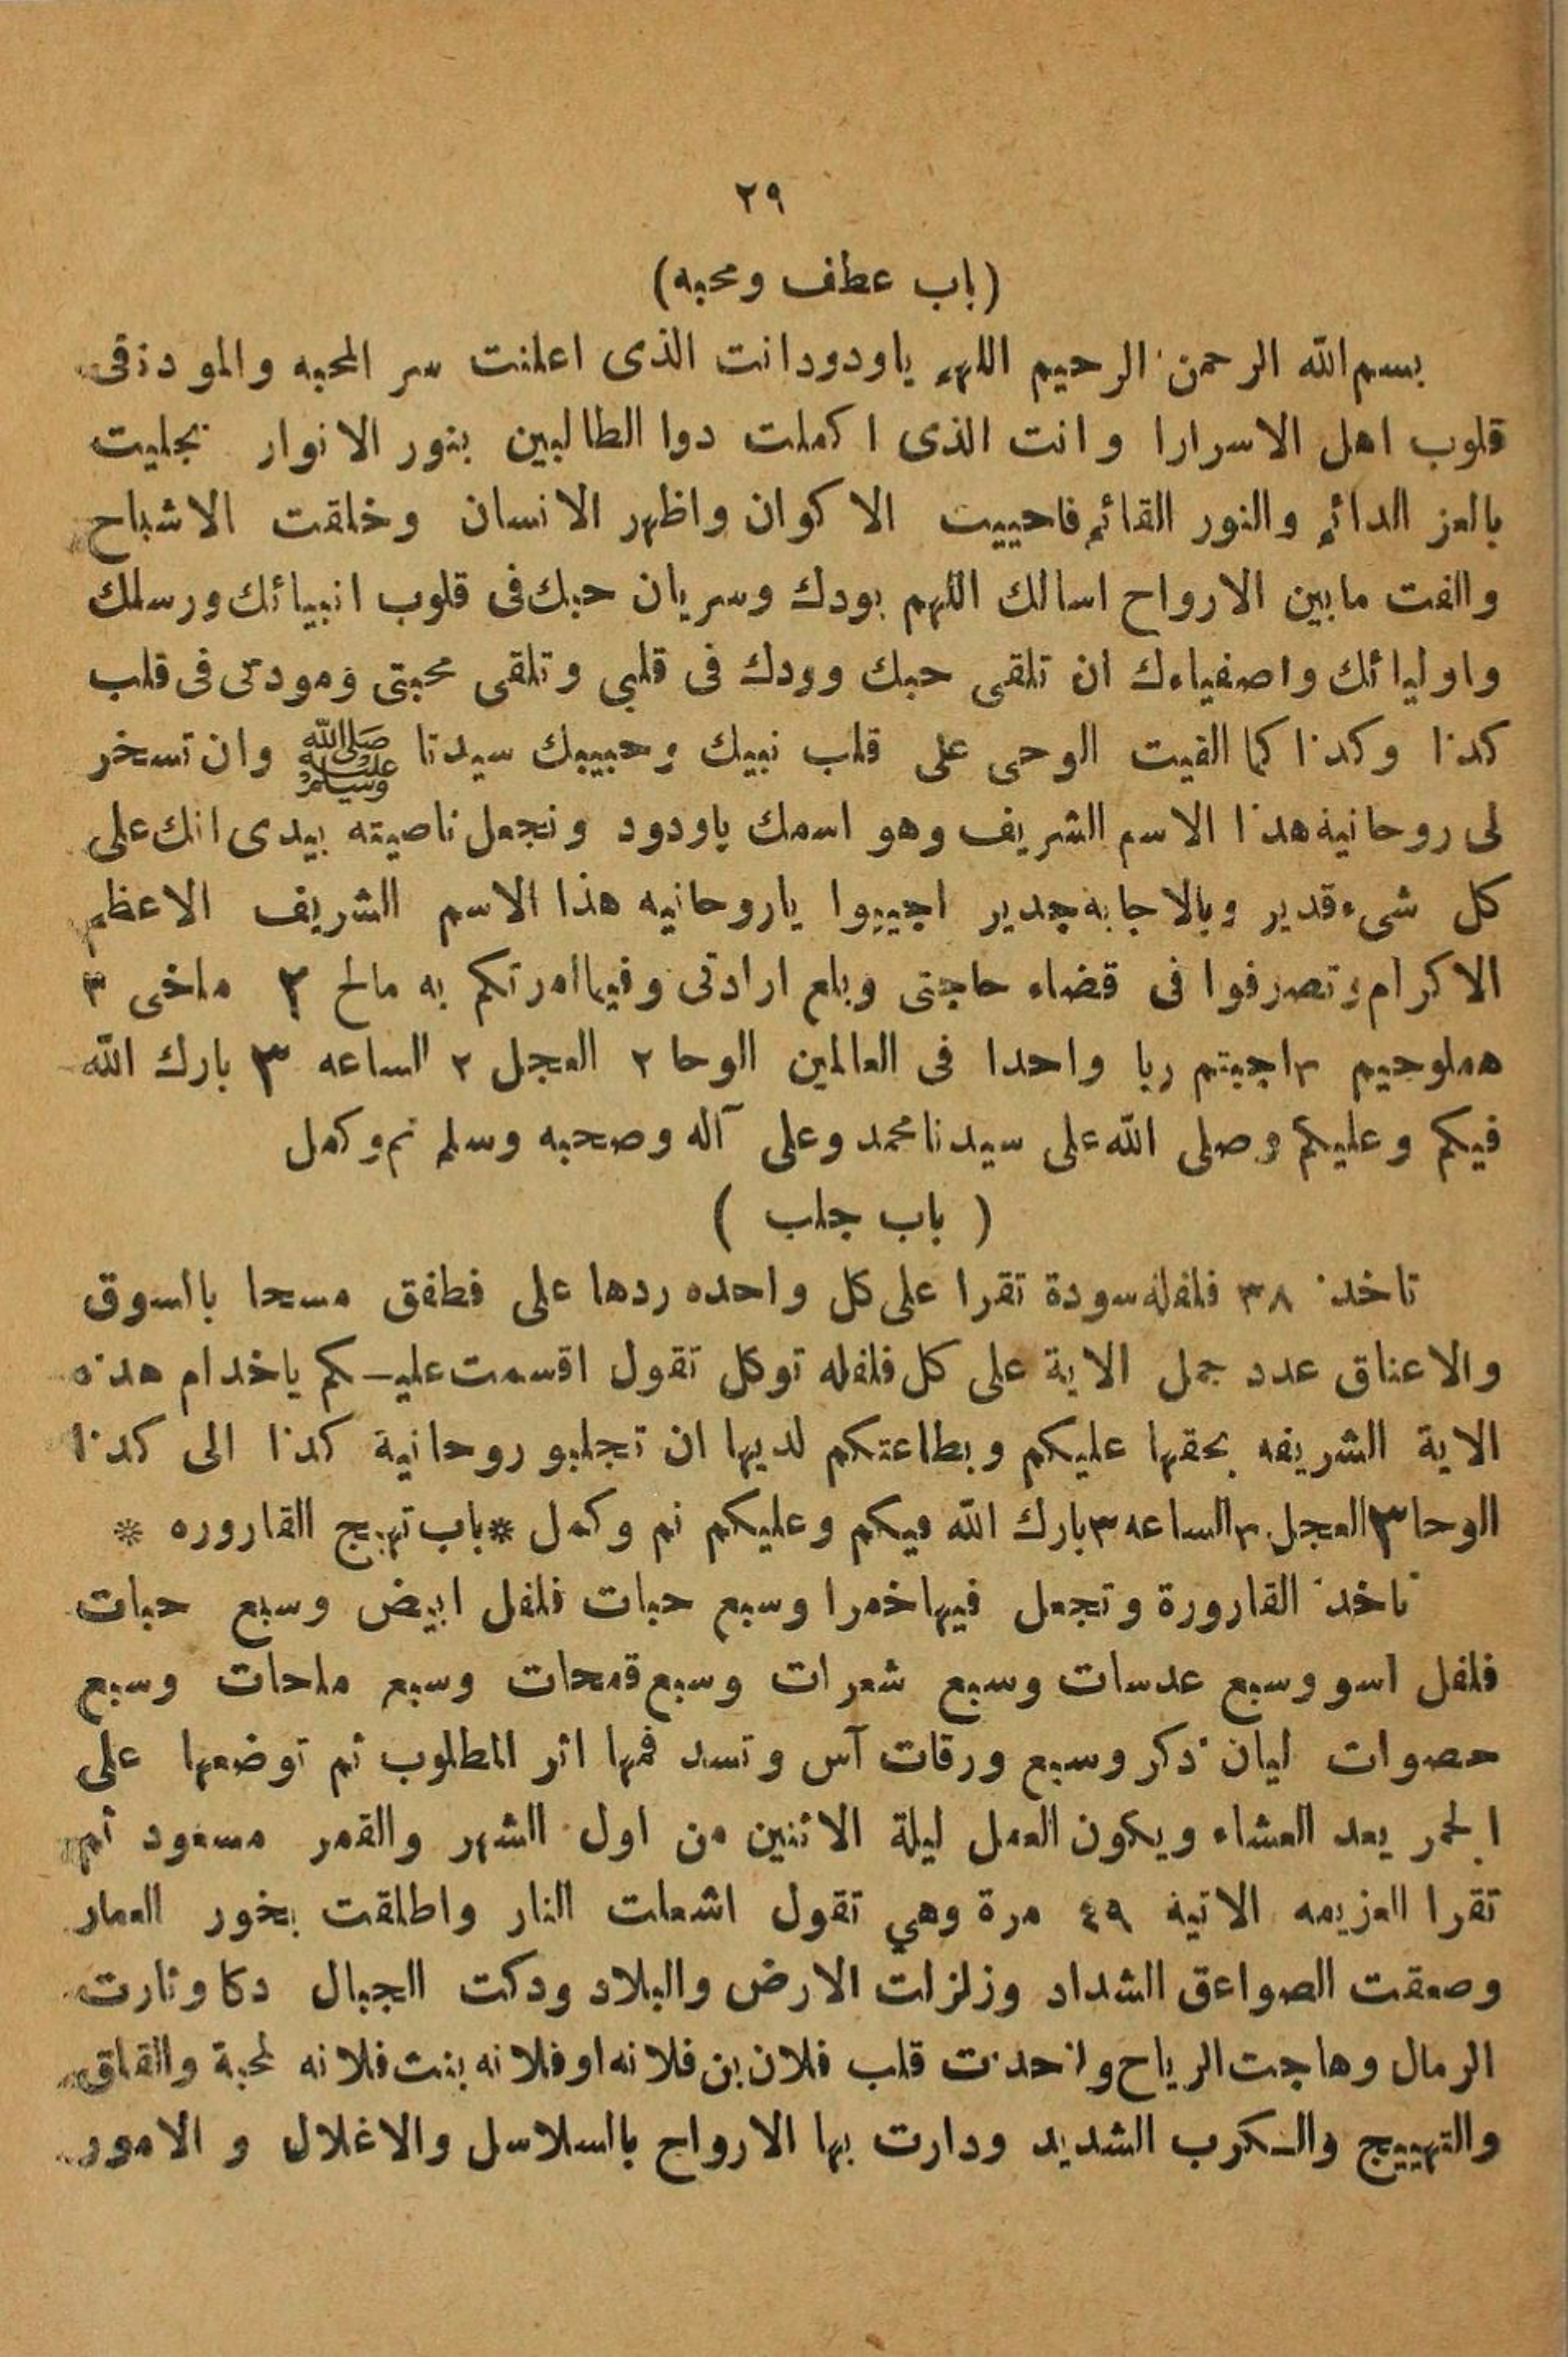 ٢٩
(باب عطف ومحبه)
بسم الله الرحمن الرحيم اللهم ياودود انت الذى اعلمنت سر المحبه والمودة فى
قلوب اهل الاسرارا وانت الذى اكملت دوا الطالبين بنور الانوار بجليت
بالعز الدائم والنور القائم فاحييت الاكوان واظهر الانسان وخلقت الاشباح
والفت مابين الارواح اسالك اللهم بودك وسريان حبك فى قلوب انبيائك ورسلك
واوليائك واصفياءك ان تلقى حبك وودك فى قلبي وتلقى محبتى ومودتى فى قلب
كذا وكذا كما القيت الوحى على قلب نبيك وحبيبك سيدنا ﷺ وان تسخر
لى روحانية هذا الاسم الشريف وهو اسمك ياودود وتجعل ناصيته بيدى انك على
كل شىء قدير وبالاجابة جدير اجيبوا ياروحانيه هذا الاسم الشريف الاعظم
الاكرام وتصرفوا فى قضاء حاجتى وبلع ارادتى وفيما امرتكم به مالخ ٢ ملخى ٣
هملوجيم ٢ اجبتم ربا واحدا فى العالمين الوحا ٢ العجل ٢ الساعه ٣ بارك الله
فيكم وعليكم وصلى الله على سيدنا محمد وعلى آله وصحبه وسلم تم وكمل
( باب جلب )
تاخذ ٣٨ فلفلة سودة تقرا على كل واحده ردها على فطفق مسحا بالسوق
والاعناق عدد جمل الاية على كل فلفله توكل تقول اقسمت عليـكم ياخدام هذه
الاية الشريفه بحقها عليكم وبطاعتكم لديها ان تجلبو روحانية كذا الى كذا
الوحا ٣ العجل ٣ الساعه ٣ بارك الله فيكم وعليكم تم وكمل *باب تهيج القاروره *
تاخذ القارورة وتجعل فيها خمرا وسبع حبات فلفل ابيض وسبع حبات
فلفل اسو وسبع عدسات وسبع شعرات وسبع قمحات وسبع ملحات وسبع
حصوات لبان ذكر وسبع ورقات آس وتسد فمها اثر المطلوب ثم توضعها على
الجمر بعد العشاء ويكون العمل ليلة الاثنين من اول الشهر والقمر مسعود ثم
تقرا العزيمه الاتية ٤٩ مرة وهي تقول اشعلت النار واطلقت بخور العمار
وصعقت الصواعق الشداد وزلزلت الارض والبلاد ودكت الجبال دكا وثارت
الرمال وهاجت الرياح واخذت قلب فلان بن فلانه او فلانه بنت فلانه لمحبة والقلق
والتهييج والـكرب الشديد ودارت بها الارواح بالسلاسل والاغلال و الامور